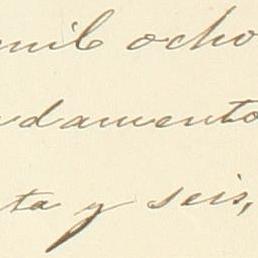 mil ocho
damento
ta y seis,